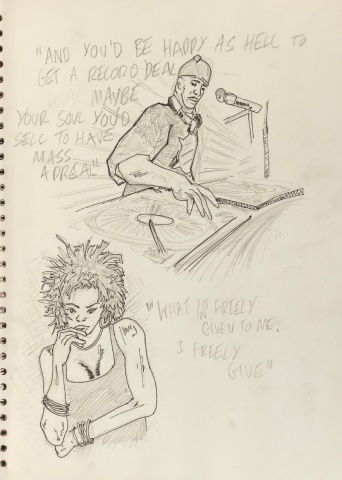 "AND YOU'D BE HAPPY AS HELL TO
GET A RECORD DEAL
MAYBE
YOUR SOUL YOU'D
SELL TO HAVE
MASS
APPEAL"
"WHAT IN FREELY
GIVEN TO ME,
I FREELY
GIVE"